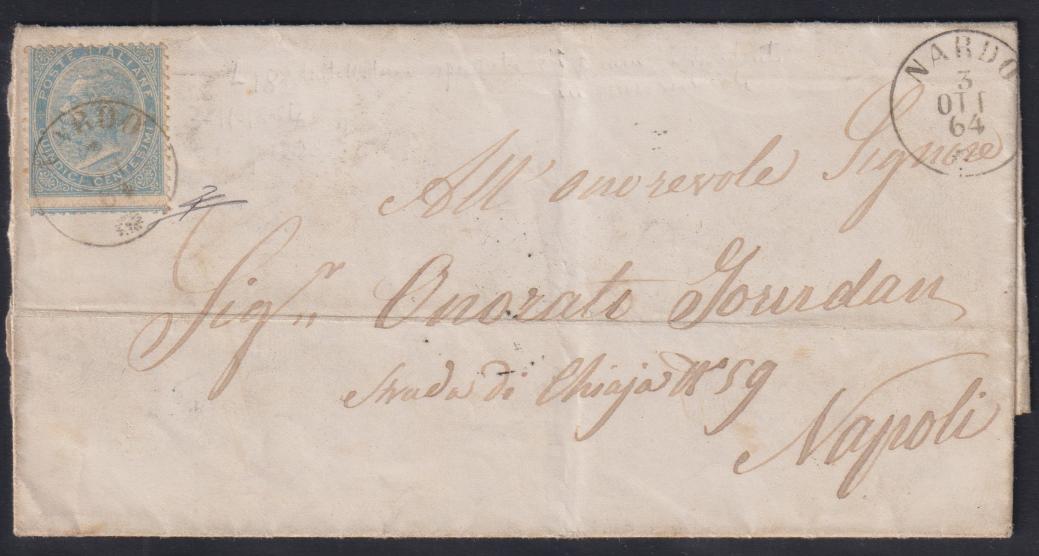 POSTE ITALIANE
QUINDICI CENTESIMI
NARDO
NARDO
3
OTT
64
All' onorevole Signore
Sigr Onorato Jourdan
Strada di Chiaja No 59
Napoli